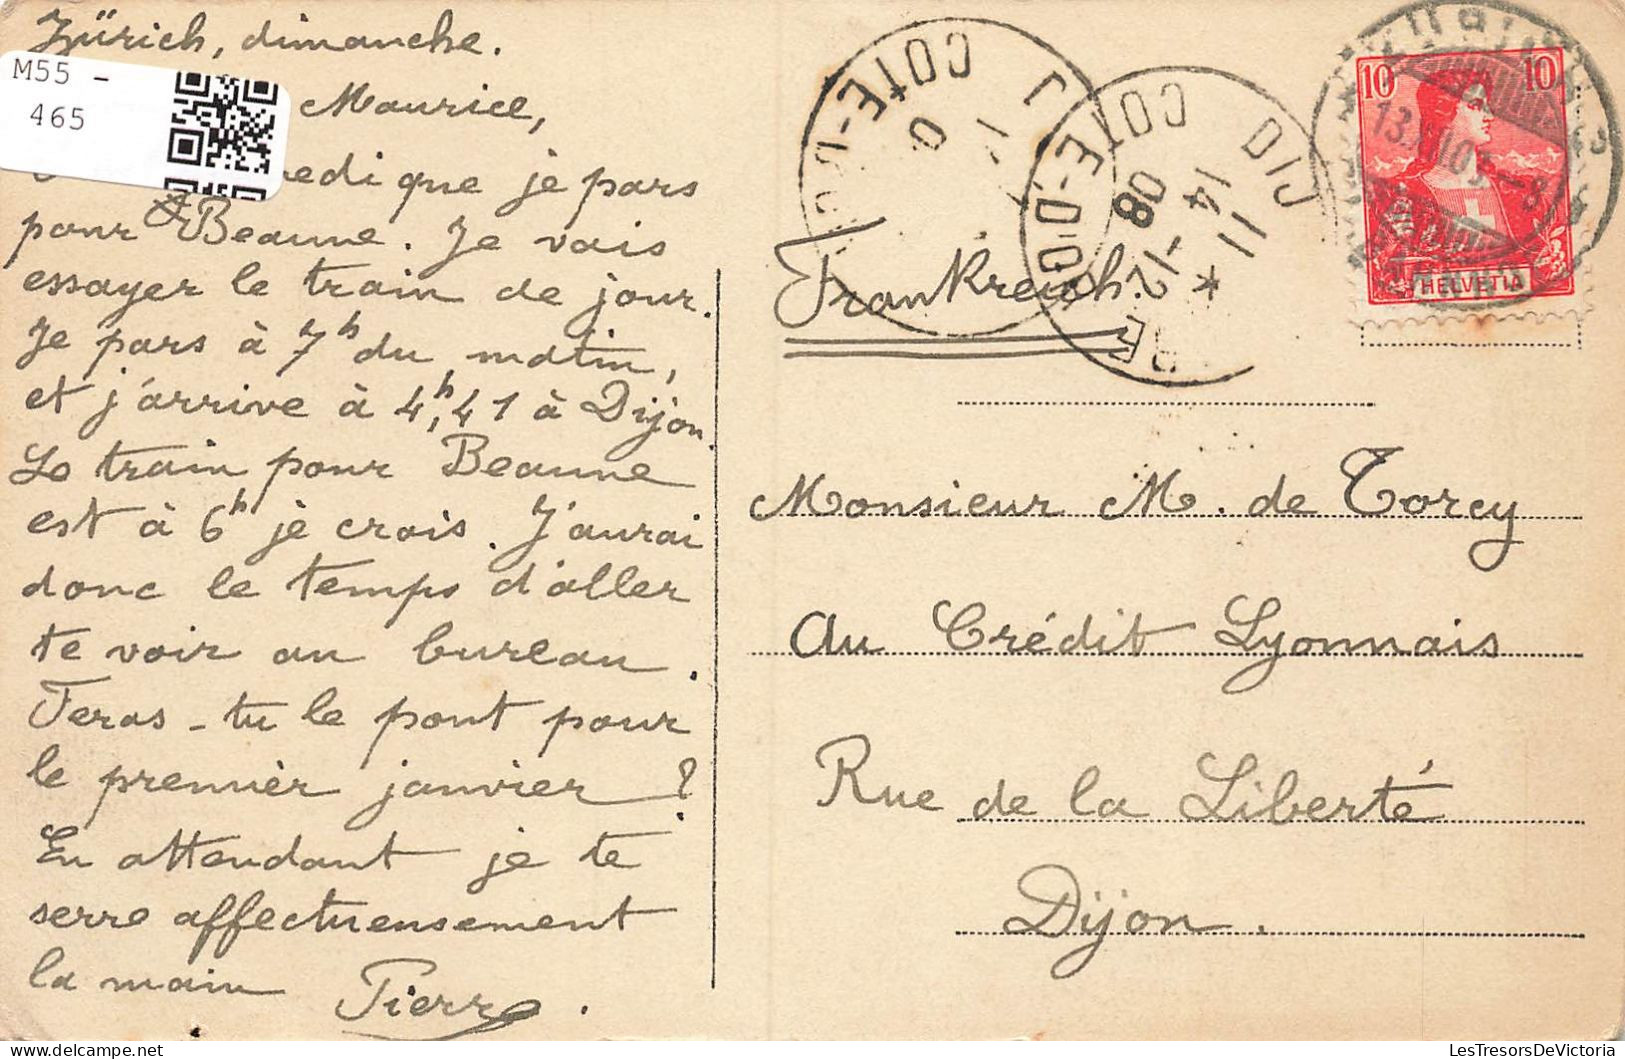 Zürich, dimanche.
M55 -
465
Maurice,
que je pars
pour Beaune. Je vais
essayer le train de jour.
Je pars à 7h du matin,
et j'arrive à 4h,41 à Dijon.
Le train pour Beaune
est à 6h je crois. J'aurai
donc le temps d'aller
te voir au bureau.
Feras-tu le pont pour
le premièr janvier ?
En attendant je te
serre affectueusement
la main Pierre.
COTE-D'OR
DIJ
COTE-D'OR
11 *
14 -12
08
10 10
HELVETIA
Frankreich.
Monsieur M. de Torcy
au Crédit Lyonnais
Rue de la Liberté
Dijon.
LesTresorsDeVictoria